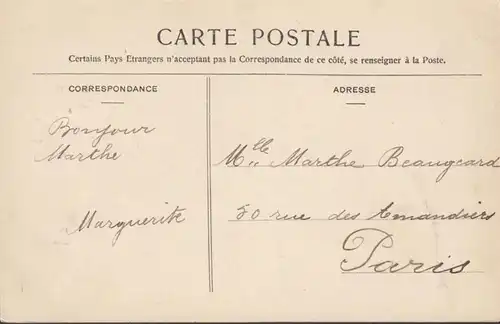 CARTE POSTALE
Certains Pays Etrangers n'acceptant pas la Correspondance de ce côté, se renseigner à la Poste.
CORRESPONDANCE
ADRESSE
Bonjour
Marthe
Marguerite
Mlle Marthe Beaugeard
50 rue des Amandiers
Paris